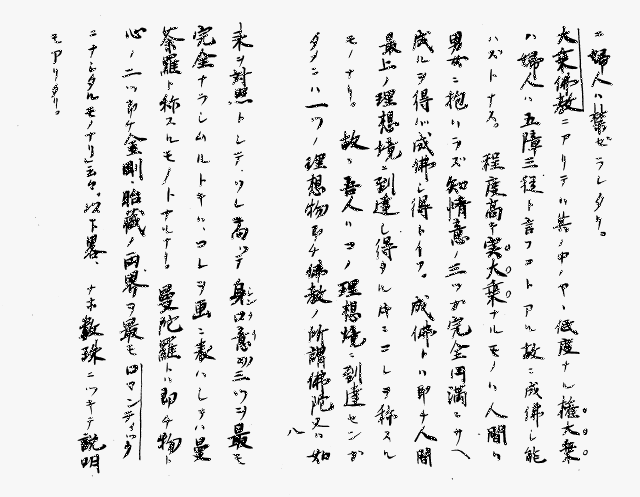 ニ婦人ハ禁ゼラレタリ。
大乗佛教ニアリテハ其ノ中ノヤヽ低度ナル権大乗
ハ婦人ハ五障三從ト言フコトアル故ニ成佛シ能
ハズトナス。程度高キ実大乗ナルモノハ人間ハ
男女ニ抱ハラズ知情意ノ三ツガ完全円満ニサヘ
成ルヲ得バ成佛シ得トイフ。成佛トハ即チ人間
最上ノ理想境ニ到達シ得タル時ニコレヲ称スル
モノナリ。故ニ吾人ハコノ理想境ニ到達センガ
タメニハ一ツノ理想物即チ佛教ノ所謂佛陀又ハ如
八
来ヲ対照トシテ、ソレ高ツテ身口意ノ三ツヲ最モ
完全ナラシムルトキハ、コレヲ画ニ表ハシテハ曼
荼羅ト称スルモノトナルナリ。曼陀羅トハ即チ物ト
心ノ二ツ即チ金剛、胎蔵ノ両界ヲ最モロマンティック
ニナシタルモノナリ」云々。以下畧、ナホ数珠ニツキテ説明
モアリタリ。